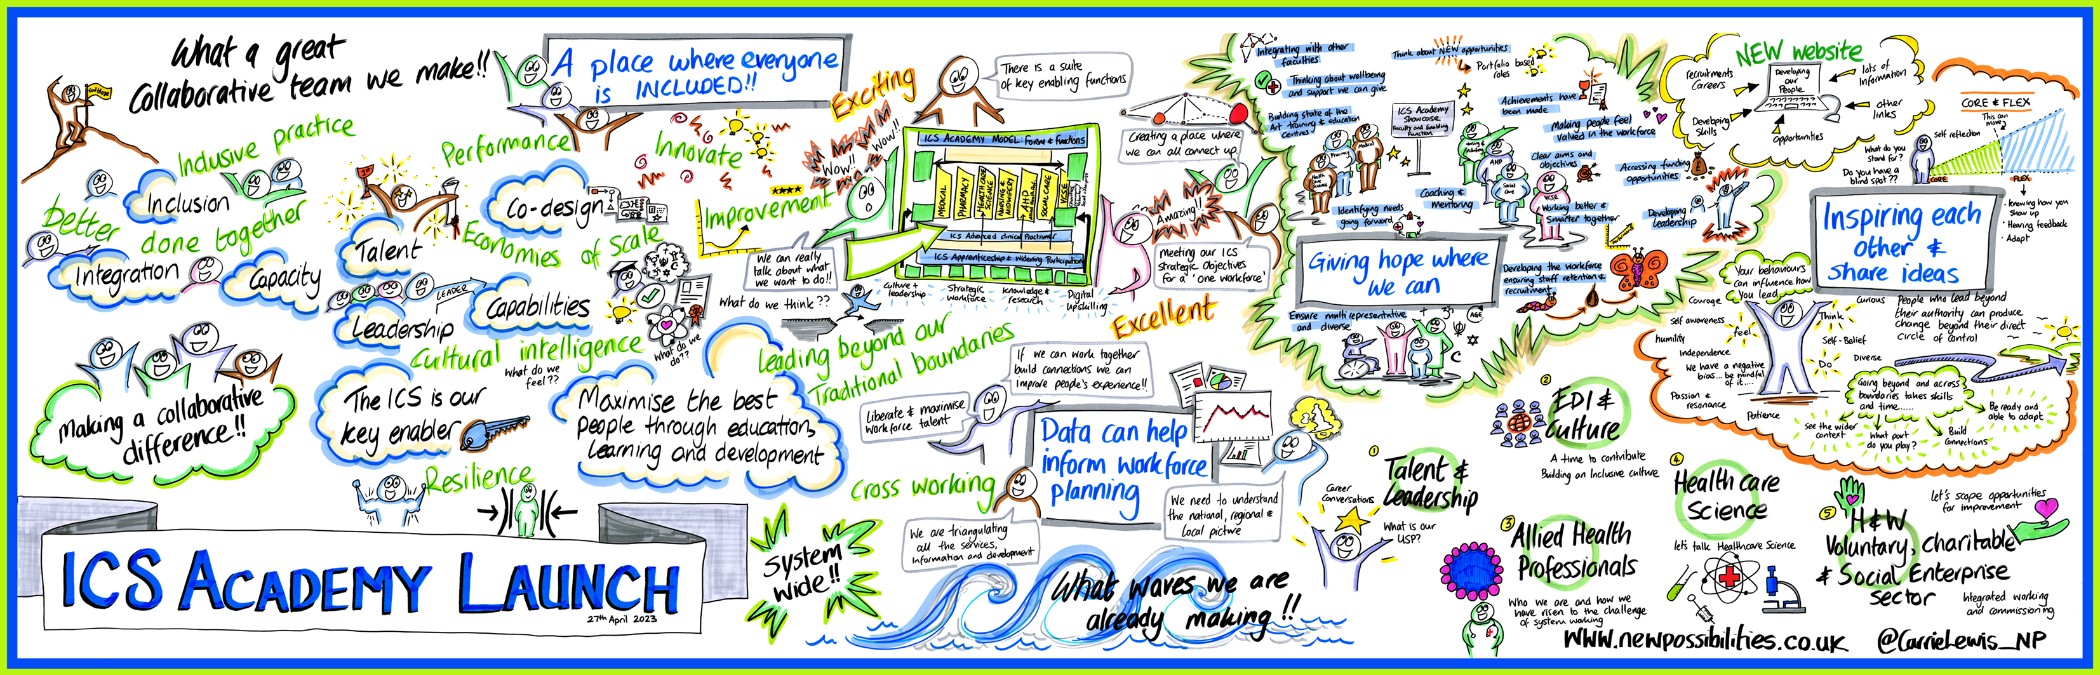 What a great
collaborative team we make!!
A place where everyone
is INCLUDED!!
Inclusive practice
Inclusion
better done together
Integration
Capacity
Performance
Talent
Co-design
Economies of Scale
LEADER
Leadership
Capabilities
Cultural intelligence
What do we
feel??
What do we
do??
Innovate
Improvement
Making a collaborative
difference!!
The ICS is our
key enabler
Maximise the best
people through education,
learning and development
Resilience
ICS ACADEMY LAUNCH
27th April 2023
Exciting
Wow!!
Wow!!
Wow!!
There is a suite
of key enabling functions
ICS ACADEMY MODEL: Form & Functions
MEDICAL
PHARMACY
HEALTHCARE
SCIENCE
NURSING &
MIDWIFERY
AHP
SOCIAL CARE
VCSE
ICS Advanced Clinical Practitioner
ICS Apprenticeship & Widening Participation
Culture +
leadership
Strategic
workforce
knowledge &
research
Digital
upskilling
We can really
talk about what
we want to do!!
What do we think??
Leading beyond our
Traditional boundaries
Creating a place where
we can all connect up
Amazing!!
Meeting our ICS
Strategic Objectives
for a 'one workforce'
Excellent
If we can work together
build connections we can
improve people's experience!!
Liberate & maximise
workforce talent
Data can help
inform workforce
planning
Cross working
We are triangulating
all the services,
information and development
We need to understand
the national, regional &
local picture
System
wide!!
What waves we are
already making!!
Integrating with other
faculties
Thinking about wellbeing
and support we can give
Building state of the
Art training & education
centres
Think about NEW opportunities
Portfolio based
roles
ICS Academy
Showcase
Faculty and Enabling
Function
Achievements have
been made
Making people feel
valued in the workforce
Clear aims and
objectives
Accessing funding
opportunities
Pharmacy
Medical
Health care
Science
Nursing &
Midwifery
AHP
Social
Care
VCSE
Coaching &
mentoring
Identifying needs
going forward
Working better &
Smarter together
Developing
leadership
Giving hope where
we can
Developing the workforce
ensuring staff retention &
recruitment
Ensure multi representative
and diverse
AGE
NEW website
recruitments
Careers
Developing
our
People
lots of
information
Developing
skills
other
links
opportunities
CORE & FLEX
This can
move
Self reflection
What do you
stand for?
Do you have a
blind spot??
CORE
FLEX
• knowing how you
show up
• Hearing feedback
• Adapt
Inspiring each
other &
share ideas
Your behaviours
can influence how
you lead
Courage
Self awareness
humility
feel
Independence
We have a negative
bias... be mindful
of it....
Passion &
resonance
Patience
Curious
Think
Self-Belief
Diverse
Do
People who lead beyond
their authority can produce
change beyond their direct
circle of control
Going beyond and across
boundaries takes skills
and time.....
See the wider
context
What part
do you play?
Build
Connections
Be ready and
able to adapt
Career
Conversations
1
Talent &
Leadership
What is our
USP?
2
EDI &
Culture
A time to contribute
Building an Inclusive culture
3
Allied Health
Professionals
Who we are and how we
have risen to the challenge
of system working
4
Health care
Science
let's talk Healthcare Science
5
H&W
Voluntary, Charitable
& Social Enterprise
Sector
Let's scope opportunities
for improvement
Integrated working
and commissioning
WWW.newpossibilities.co.uk
@CarrieLewis_NP